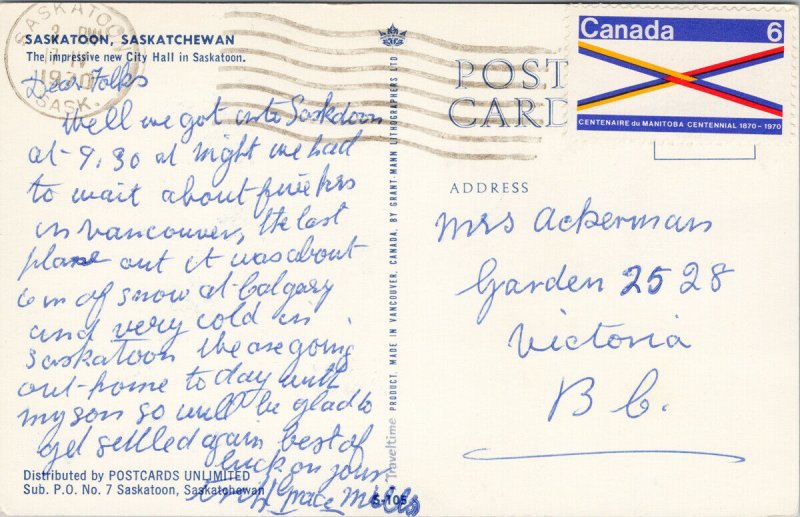 SASKATOON, SASKATCHEWAN
The impressive new City Hall in Saskatoon.
SASKATOON
2 PM
1970
SASK.
Dear Folks
Well we got into Saskatoon
at 9.30 at night we had
to wait about five hrs
in Vancouver, the last
plane out it was about
6 in of snow at Calgary
and very cold in
Saskatoon We are going
out home today with
my son so will be glad to
get settled again best of
luck on your
Grace Mills
Distributed by POSTCARDS UNLIMITED
Sub. P.O. No. 7 Saskatoon, Saskatchewan
S-105
Traveltime PRODUCT, MADE IN VANCOUVER, CANADA, BY GRANT-MANN LITHOGRAPHERS LTD.
POST
CARD
Canada 6
CENTENAIRE du MANITOBA CENTENNIAL 1870-1970
ADDRESS
Mrs Ackerman
Garden 2528
Victoria
B C.